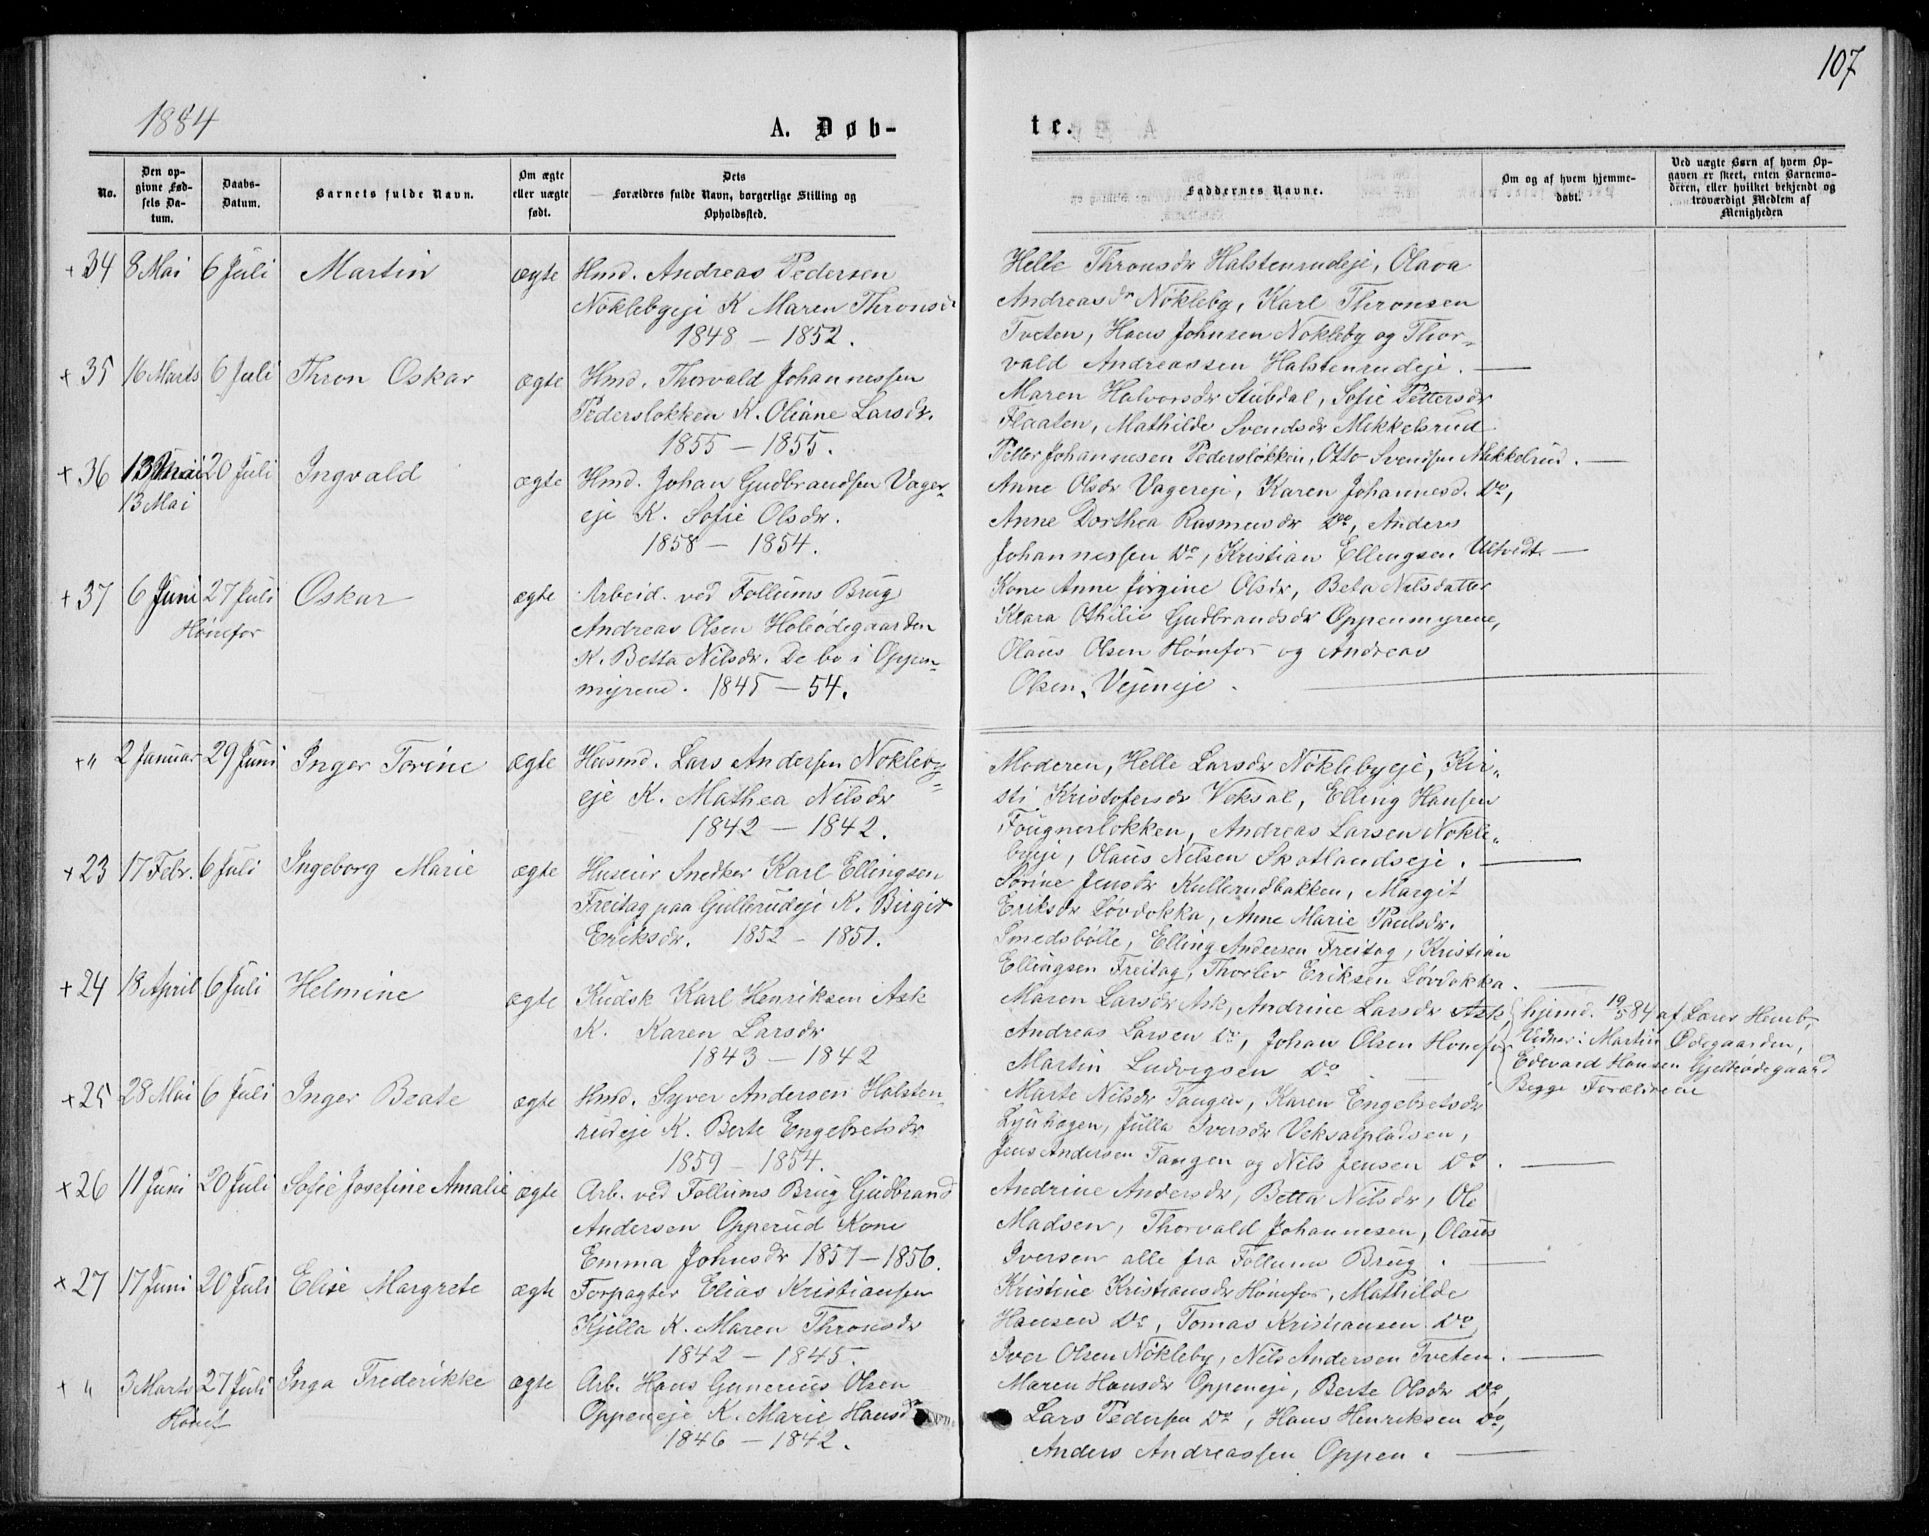 107
1884
A. Døb-
te.
No.
Den op-
givne Fød-
sels Da-
tum.
Daabs-
Datum.
Barnets fulde Navn.
Om ægte
eller uægte
født.
Dets
Forældres fulde Navn, borgerlige Stilling og
Opholdssted.
Faddernes Navne.
Om og af hvem hjemme-
døbt.
Ved uægte Børn af hvem Op-
gaven er skeet, enten Barnemo-
deren, eller hvilket bekjendt og
troværdigt Medlem af
Menigheden
+34 8 Mai 6 Juli Martin ægte Hmd. Andreas Pedersen
Nøklebyeje K Maren Thronsd
1848 – 1852.
Helle Thronsdr Halstenrudeje, Olava
Andreasdr Nøkleby, Karl Thronsen
Tveten, Hans Johnsen Nøkleby og Thor-
vald Andreassen Halstenrudeje.
+35 16 Marts 6 Juli Thron Oskar ægte Hmd. Thorvald Johannessen
Pedersløkken K. Oliane Larsdr.
1855 – 1855.
Maren Halvorsdr Stubdal, Sofie Pettersdr
Flaaten, Mathilde Svendsdr Mikkelsrud
Petter Johannesen Pedersløkken, Otto Svendsen Mikkelrud.
+36 20 Juli Ingvald ægte Hmd. Johan Gudbrandsen Vager-
13 Mai
eje K. Sofie Olsdr.
1858 – 1854.
Anne Olsdr Vagereje, Karen Johannesd. Do,
Anne Dorthea Rasmusdr Do, Anders
Johannessen Do, Kristian Ellingsen Ultvedt
+37 6 Juni 27 Juli Oskar ægte Arbeid. ved Follums Brug
Hønefos
Andreas Olsen Holeødegaarden
K. Betta Nilsdr. De bo i Oppen-
myrene. 1845 – 54.
Kone Anne Jørgine Olsdr, Beta Nilsdatter
Klara Othilie Gudbrandsdr Oppenmyrene,
Olaus Olsen Hønefos og Andreas
Olsen, Vejeneje.
+" 2 Januar 29 Juni Inger Torine ægte Husmd. Lars Andersen Nøkleby-
eje K. Mathea Nilsdr
1842 – 1842.
Moderen, Helle Larsdr Nøklebyeje, Kir-
sti Kristofersdr Veksal, Elling Hansen
Fougnerløkken, Andreas Larsen Nøkle-
byeje, Olaus Nilsen Skotlandseje.
+23 17 Febr. 6 Juli Ingeborg Marie ægte Huseier Snedker Karl Ellingsen
Freitag paa Gullerudeje K. Birgit
Eriksdr. 1852 – 1851.
Sørine Jensdr Kullerudbakken, Margit
Eriksdr Løvdokka, Anne Marie Paulsdr.
Smedsbølle, Elling Andersen Freitag, Kristian
Ellingsen Freitag, Thorlev Eriksen Løvdokka.
+24 18 April 6 Juli Helmine ægte Kudsk Karl Henriksen Ask
K. Karen Larsdr
1843 – 1842
Maren Larsdr Ask, Andrine Larsdr Ask,
Andreas Larsen Do, Johan Olsen Honefos
Martin Ludvigsen Do
hjemd. 19/5 84 af Lærer Hemb,
Vidner: Martin Ødegaarden,
Edevard Hansen Gjelleødegaard
Begge Forældrene
+25 28 Mai 6 Juli Inger Beate ægte Hmd. Syver Andersen Halsten-
rudeje K. Berte Engebretsdr
1859 – 1854.
Marte Nilsdr Tangen, Karen Engebretsdr
Lyuhagen, Julla Iversdr Veksalpladsen,
Jens Andersen Tangen og Nils Jensen Do.
+26 11 Juni 20 Juli Sofie Josefine Amalie ægte Arb. ved Follums Brug Gudbrand
Andersen Opperud Kone
Emma Johnsdr 1857 – 1856.
Andrine Andersdr, Betta Nilsdr, Ole
Madsen, Thorvald Johannesen, Olaus
Iversen alle fra Follums Brug.
+27 17 Juni 20 Juli Elise Margrete ægte Forpagter Elias Kristiansen
Kjella K. Maren Thronsdr
1842 – 1845.
Kristine Kristiansdr Hønefos, Mathilde
Hansen Do, Tomas Kristiansen Do,
Iver Olsen Nøkleby, Nils Andersen Tveten.
+" 3 Marts 27 Juli Inga Frederikke ægte Arb. Hans Gunerius Olsen
Hønef
Oppeneje K. Marie Hansdr
1846 – 1842.
Maren Hansdr Oppeneje, Berte Olsdr Do,
Lars Pedersen Do, Hans Henriksen Do,
Anders Andreassen Oppen.